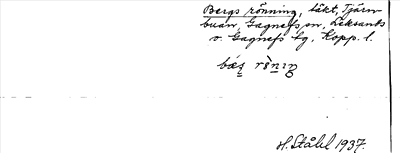 Bergs rönning, täkt, Tjärn
buan, Gagnefs sn, Leksands
o. Gagnefs tg, Kopp. l.
H. Ståhl 1937.